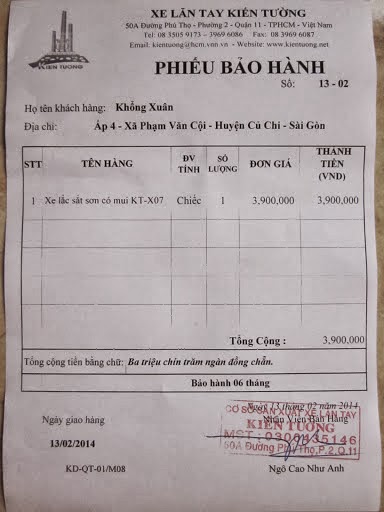 KIẾN TƯỜNG
XE LĂN TAY KIẾN TƯỜNG
50A Đường Phú Thọ - Phường 2 - Quận 11 - TPHCM - Việt Nam
Tel: 08 3505 9173 – 3969 6086 Fax: 08 3969 6087
Email: kientuong@hcm.vnn.vn - Website: www.kientuong.net
PHIẾU BẢO HÀNH
Số: 13 - 02
Họ tên khách hàng: Khổng Xuân
Địa chỉ: Ấp 4 - Xã Phạm Văn Cội - Huyện Củ Chi - Sài Gòn
STT TÊN HÀNG ĐV TÍNH SỐ LƯỢNG ĐƠN GIÁ THÀNH TIỀN (VND)
1 Xe lắc sắt sơn có mui KT-X07 Chiếc 1 3,900,000 3,900,000
Tổng Cộng : 3,900,000
Tổng cộng tiền bằng chữ: Ba triệu chín trăm ngàn đồng chẵn.
Bảo hành 06 tháng
Ngày 13 tháng 02 năm 2014
Ngày giao hàng Nhân Viên Bán Hàng
CƠ SỞ SẢN XUẤT XE LĂN TAY
KIẾN TƯỜNG
MST: 0300435146
50A Đường Phú Thọ, P.2, Q.11
13/02/2014
KD-QT-01/M08 Ngô Cao Như Anh